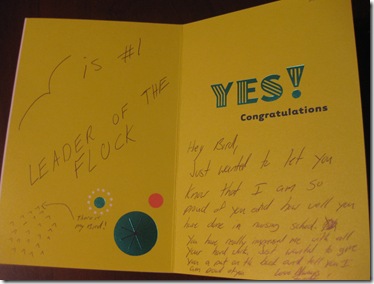 is #1
LEADER OF THE
FLOCK
There's
my Bird!
YES!
Congratulations
Hey Bird,
Just wanted to let you
know that I am so
proud of you and how well you
have done in nursing school.
You have really impressed me with all
your hard work. Just wanted to give
you a pat on the head and tell you I
am proud of you. Love Always,